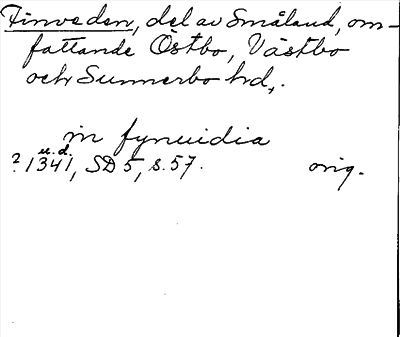 Finveden, del av Småland, om-
fattande Östbo, Västbo
och Sunnerbo hd,.
in fynuidia
u.d.
? 1341, SD 5, s. 57. orig.